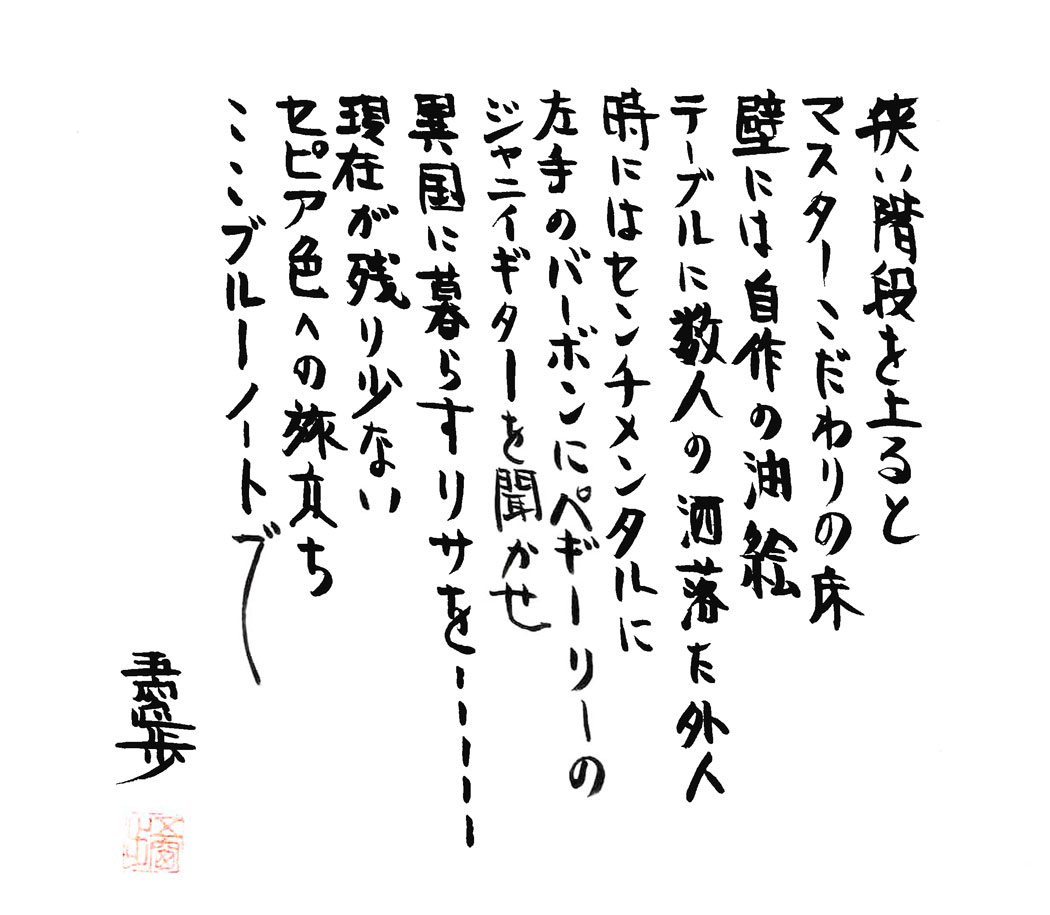 狭い階段を上ると
マスターこだわりの床
壁には自作の油絵
テーブルに数人の洒落た外人
時にはセンチメンタルに
左手のバーボンにペギーリーの
ジャニイギターを聞かせ
異国に暮らすリサを-----
現在が残り少ない
セピア色への旅立ち
ここブルーノートで